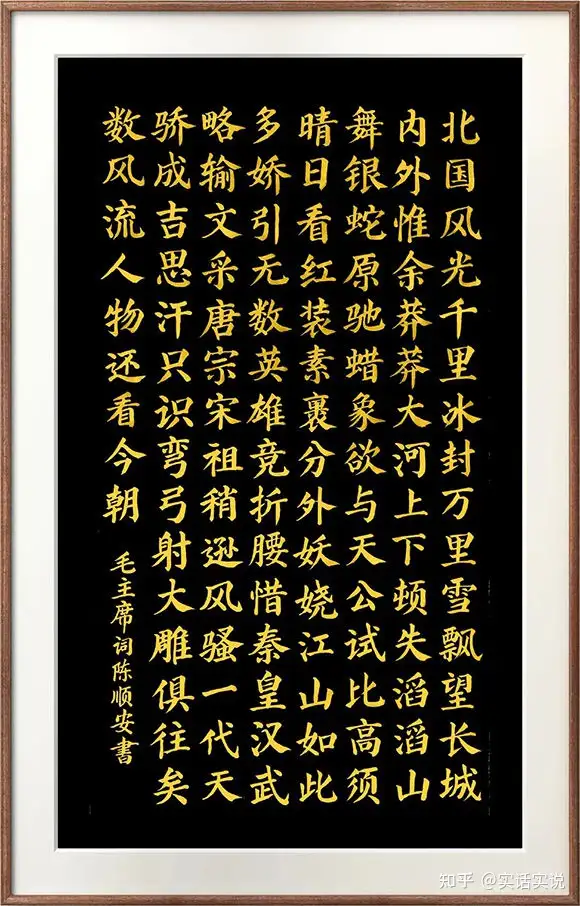 北国风光千里冰封万里雪飘望长城
内外惟余莽莽大河上下顿失滔滔山
舞银蛇原驰蜡象欲与天公试比高须
晴日看红装素裹分外妖娆江山如此
多娇引无数英雄竞折腰惜秦皇汉武
略输文采唐宗宋祖稍逊风骚一代天
骄成吉思汗只识弯弓射大雕俱往矣
数风流人物还看今朝
毛主席词陈顺安書
知乎 @实话实说